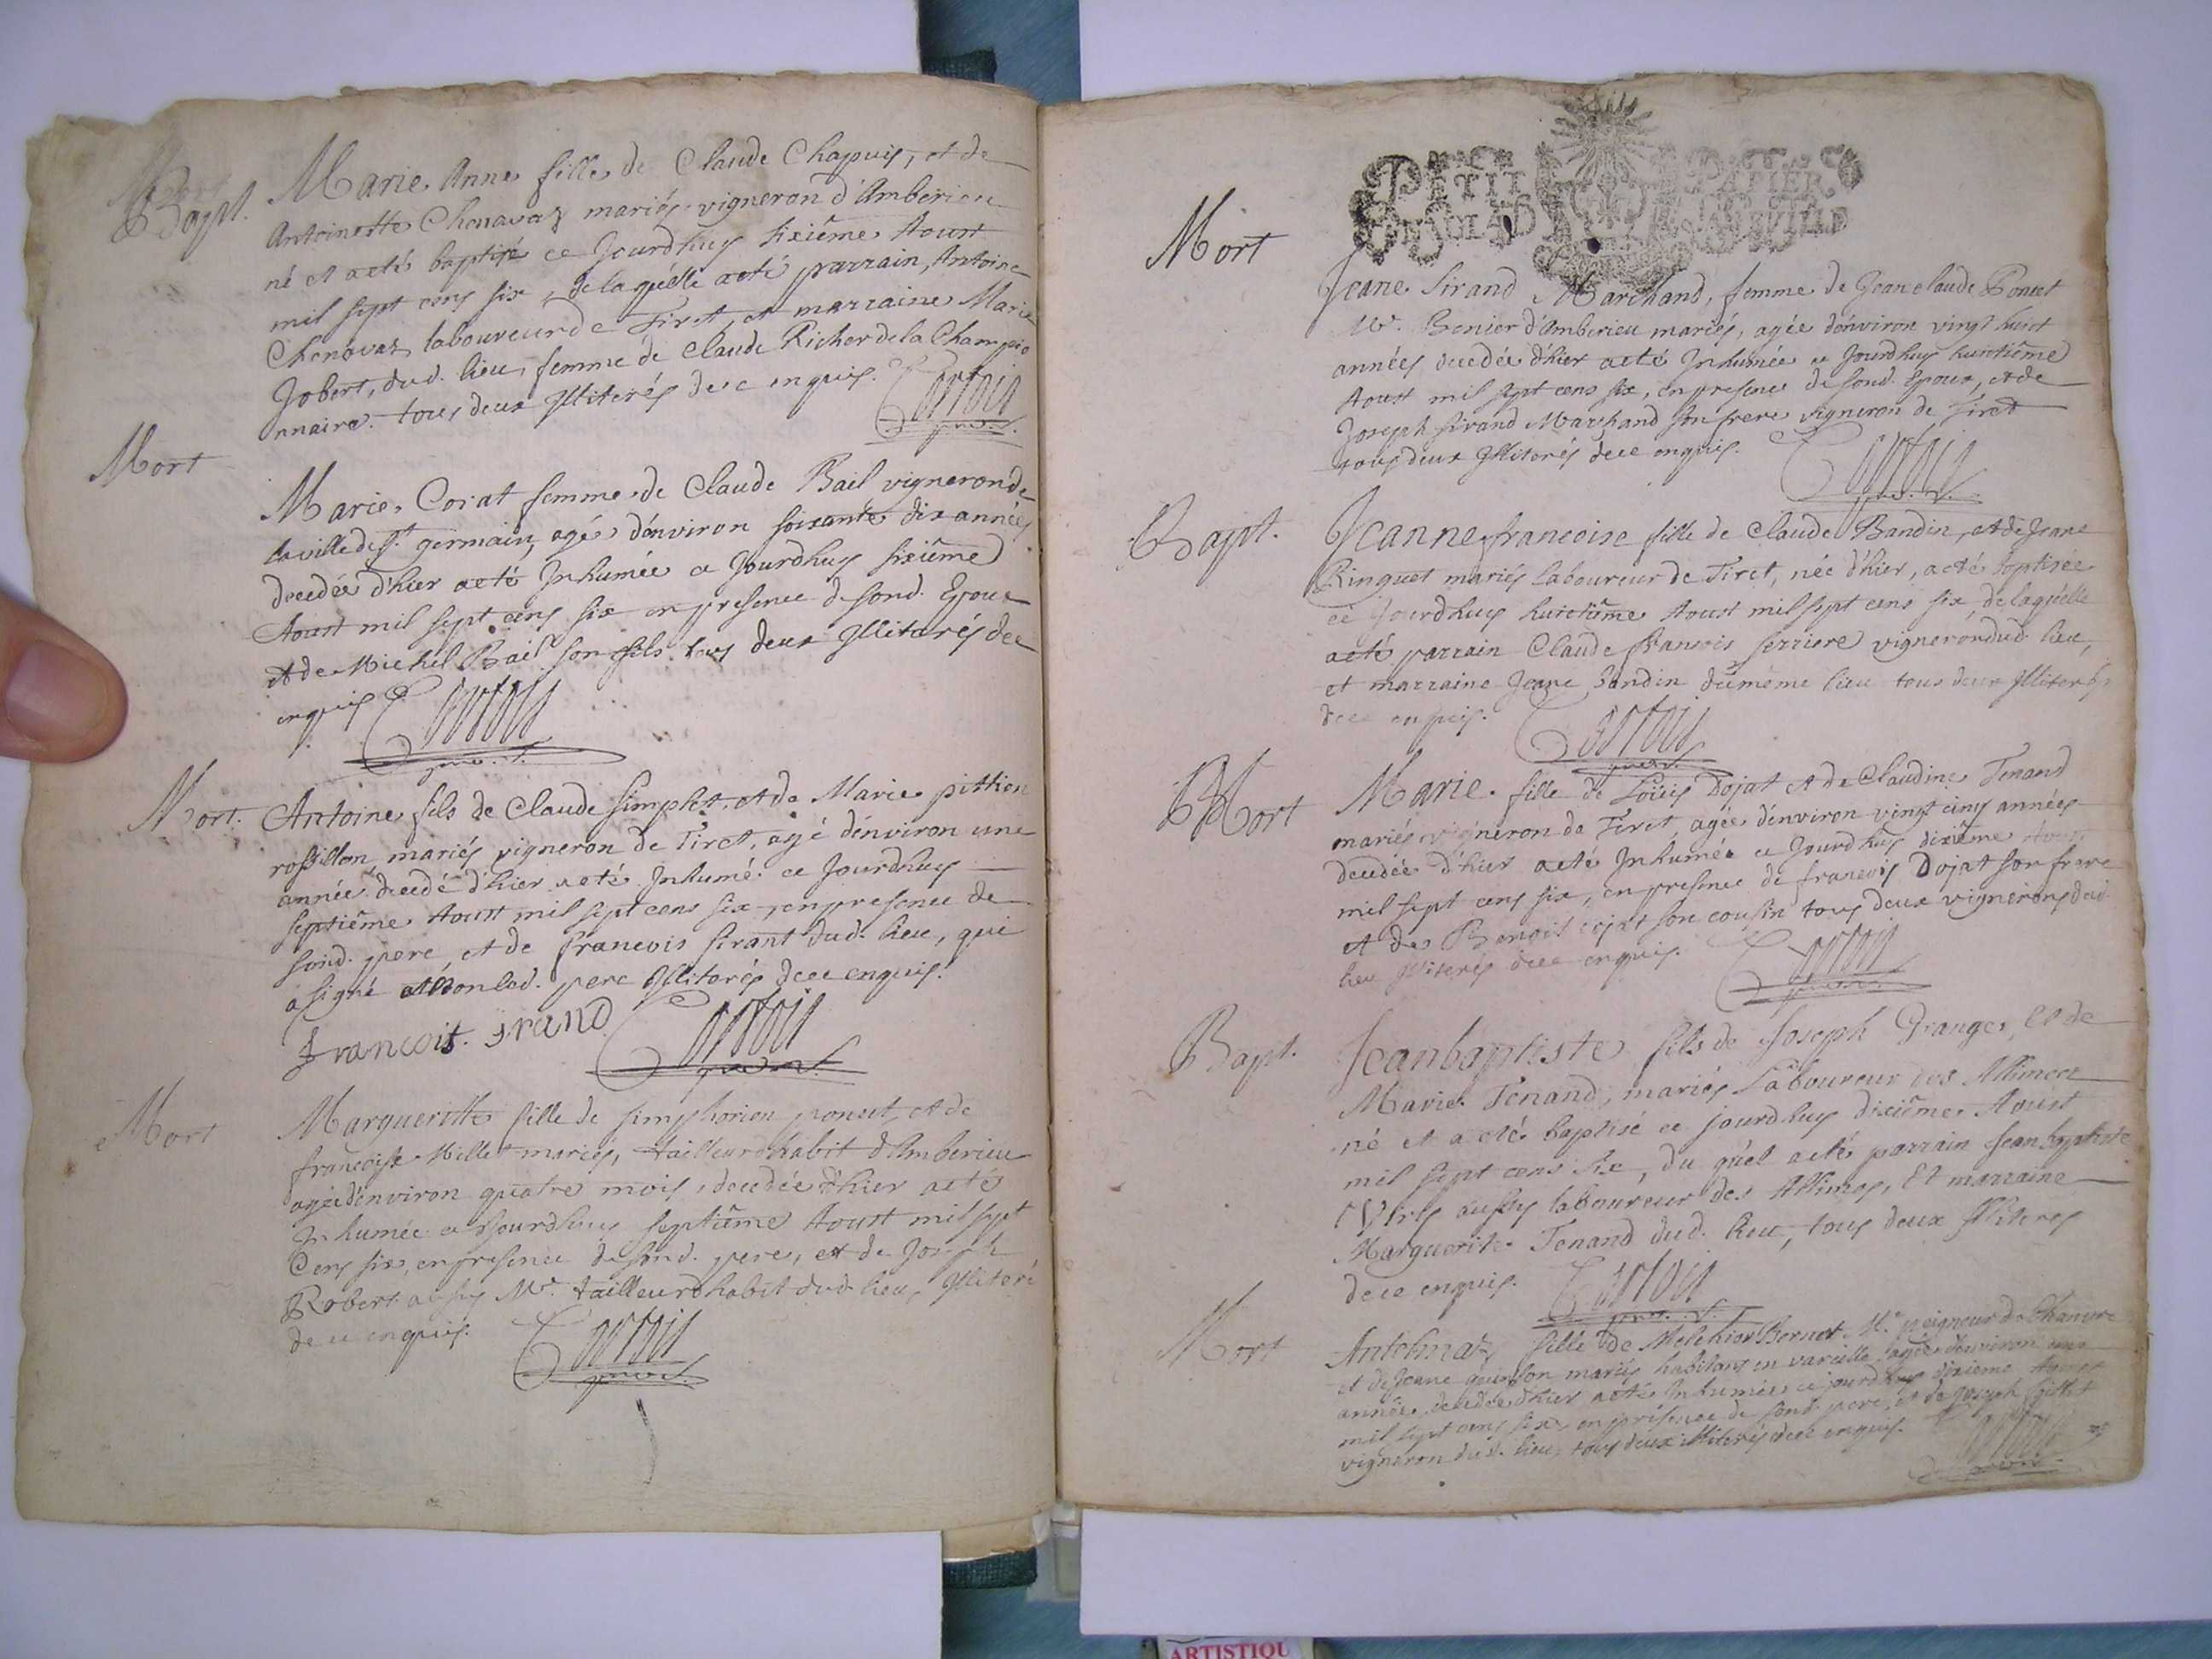 Bapt.
Marie Anne fille de Claude Chapuis, et de
Antoinette Chenavaz mariés vigneron d'Amberieu
né et acté baptisé ce Jourdhuy sixiême Aoust
mil sept cens six, delaquélle acté parrain, Antoine
Chenavaz laboureur de Tiret, et marraine Marie
Jobert, dud. lieu, femme de Claude Richerdela Champio
nnaire. tous deux Illiterés dece enquis.
Mort
Marie Corat femme de Claude Bail vigneron de
laville de St. germain, agé d'environ soixante dix années
decedée d'hier acté Inhumée ce Jourdhuy sixiême
Aoust mil sept cens six en presence de sond. Epoux
et de Michel Bail son fils tous deux Illiterés dece
enquis
Mort.
Antoine fils de Claude simplet, et de Marie pittion
rossillon, mariés vigneron de Tiret, agé d'environ une
année decedé d'hier acté Inhumé ce Jourdhuy
septiême Aoust mil sept cens six, en presence de
sond. pere, et de francois sirant dud. lieu, qui
a signé et non led. pere Illiterés dece enquis.
francois. sirand
Mort
Margueritte fille de simphorien poncet, et de
francoise Millet mariés, tailleurdhabit d'Amberieu
agée d'environ quatre mois, decedée d'hier acté
Inhumée ce Jourdhuy septiême Aoust mil sept
Cens six, en presence de sond. pere, et de Joseph
Robert aussy Mr. tailleurdhabit dud. lieu, Illiteré
de ce enquis.
PETIT PAPIER
Mort
Jeane Sirand Marchand, femme de Jean claude Poncet
Mr. Benier d'Amberieu mariés, agée d'environ vingt huict
années decedée d'hier acté Inhumée ce Jourdhuy huictiême
Aoust mil sept cens six, en presence de sond. Epoux, et de
Joseph sirand Marchand son frere vigneron de Tiret
tous deux Illiterés dece enquis.
Bapt.
Jeanne francoise fille de Claude Bandin, et de Jeane
Ringuet mariés Laboureur de Tiret, née d'hier, acté baptisée
ce Jourdhuy huictiême Aoust mil sept cens six, delaquélle
acté parrain Claude francois ferriere vigneron dud. lieu,
et marraine Jeane Bandin dumême lieu tous deux Illiterés
dece enquis.
Mort
Marie fille de Loüis Dojat et de Claudine Tenand
mariés vigneron de Tiret, agée d'environ vingt cinq années
decedée d'hier acté Inhumée ce Jourdhuy dixiême Aoust
mil sept cens six, en presence de francois Dojat son frere
et de Benoit Dojat son cousin tous deux vignerons dud.
lieu Illiterés dece enquis.
Bapt.
Jeanbaptiste fils de Joseph Grange, et de
Marie Tenand, mariés Laboureur des Allimes
né et a eté baptisé ce jourdhuy dixiême Aoust
mil sept cens six, du quel acté parrain Jean baptiste
aussy laboureur des Allimes, Et marraine
Marguerite Tenand dud. lieu, tous deux Illiteres
de ce enquis.
Mort
Antelmaz fille de Melchior Bernet Mr. peigneur de Chanvre
et de Jeane mariés habitans en vareille, agée d'environ une
année, decedée d'hier acté Inhumée ce jourdhuy dixieme Aoust
mil sept cens six, en présence de sond. pere, et de Joseph Gillet
vigneron dud. lieu, tous deux illiterés dece enquis.
ARTISTIQU